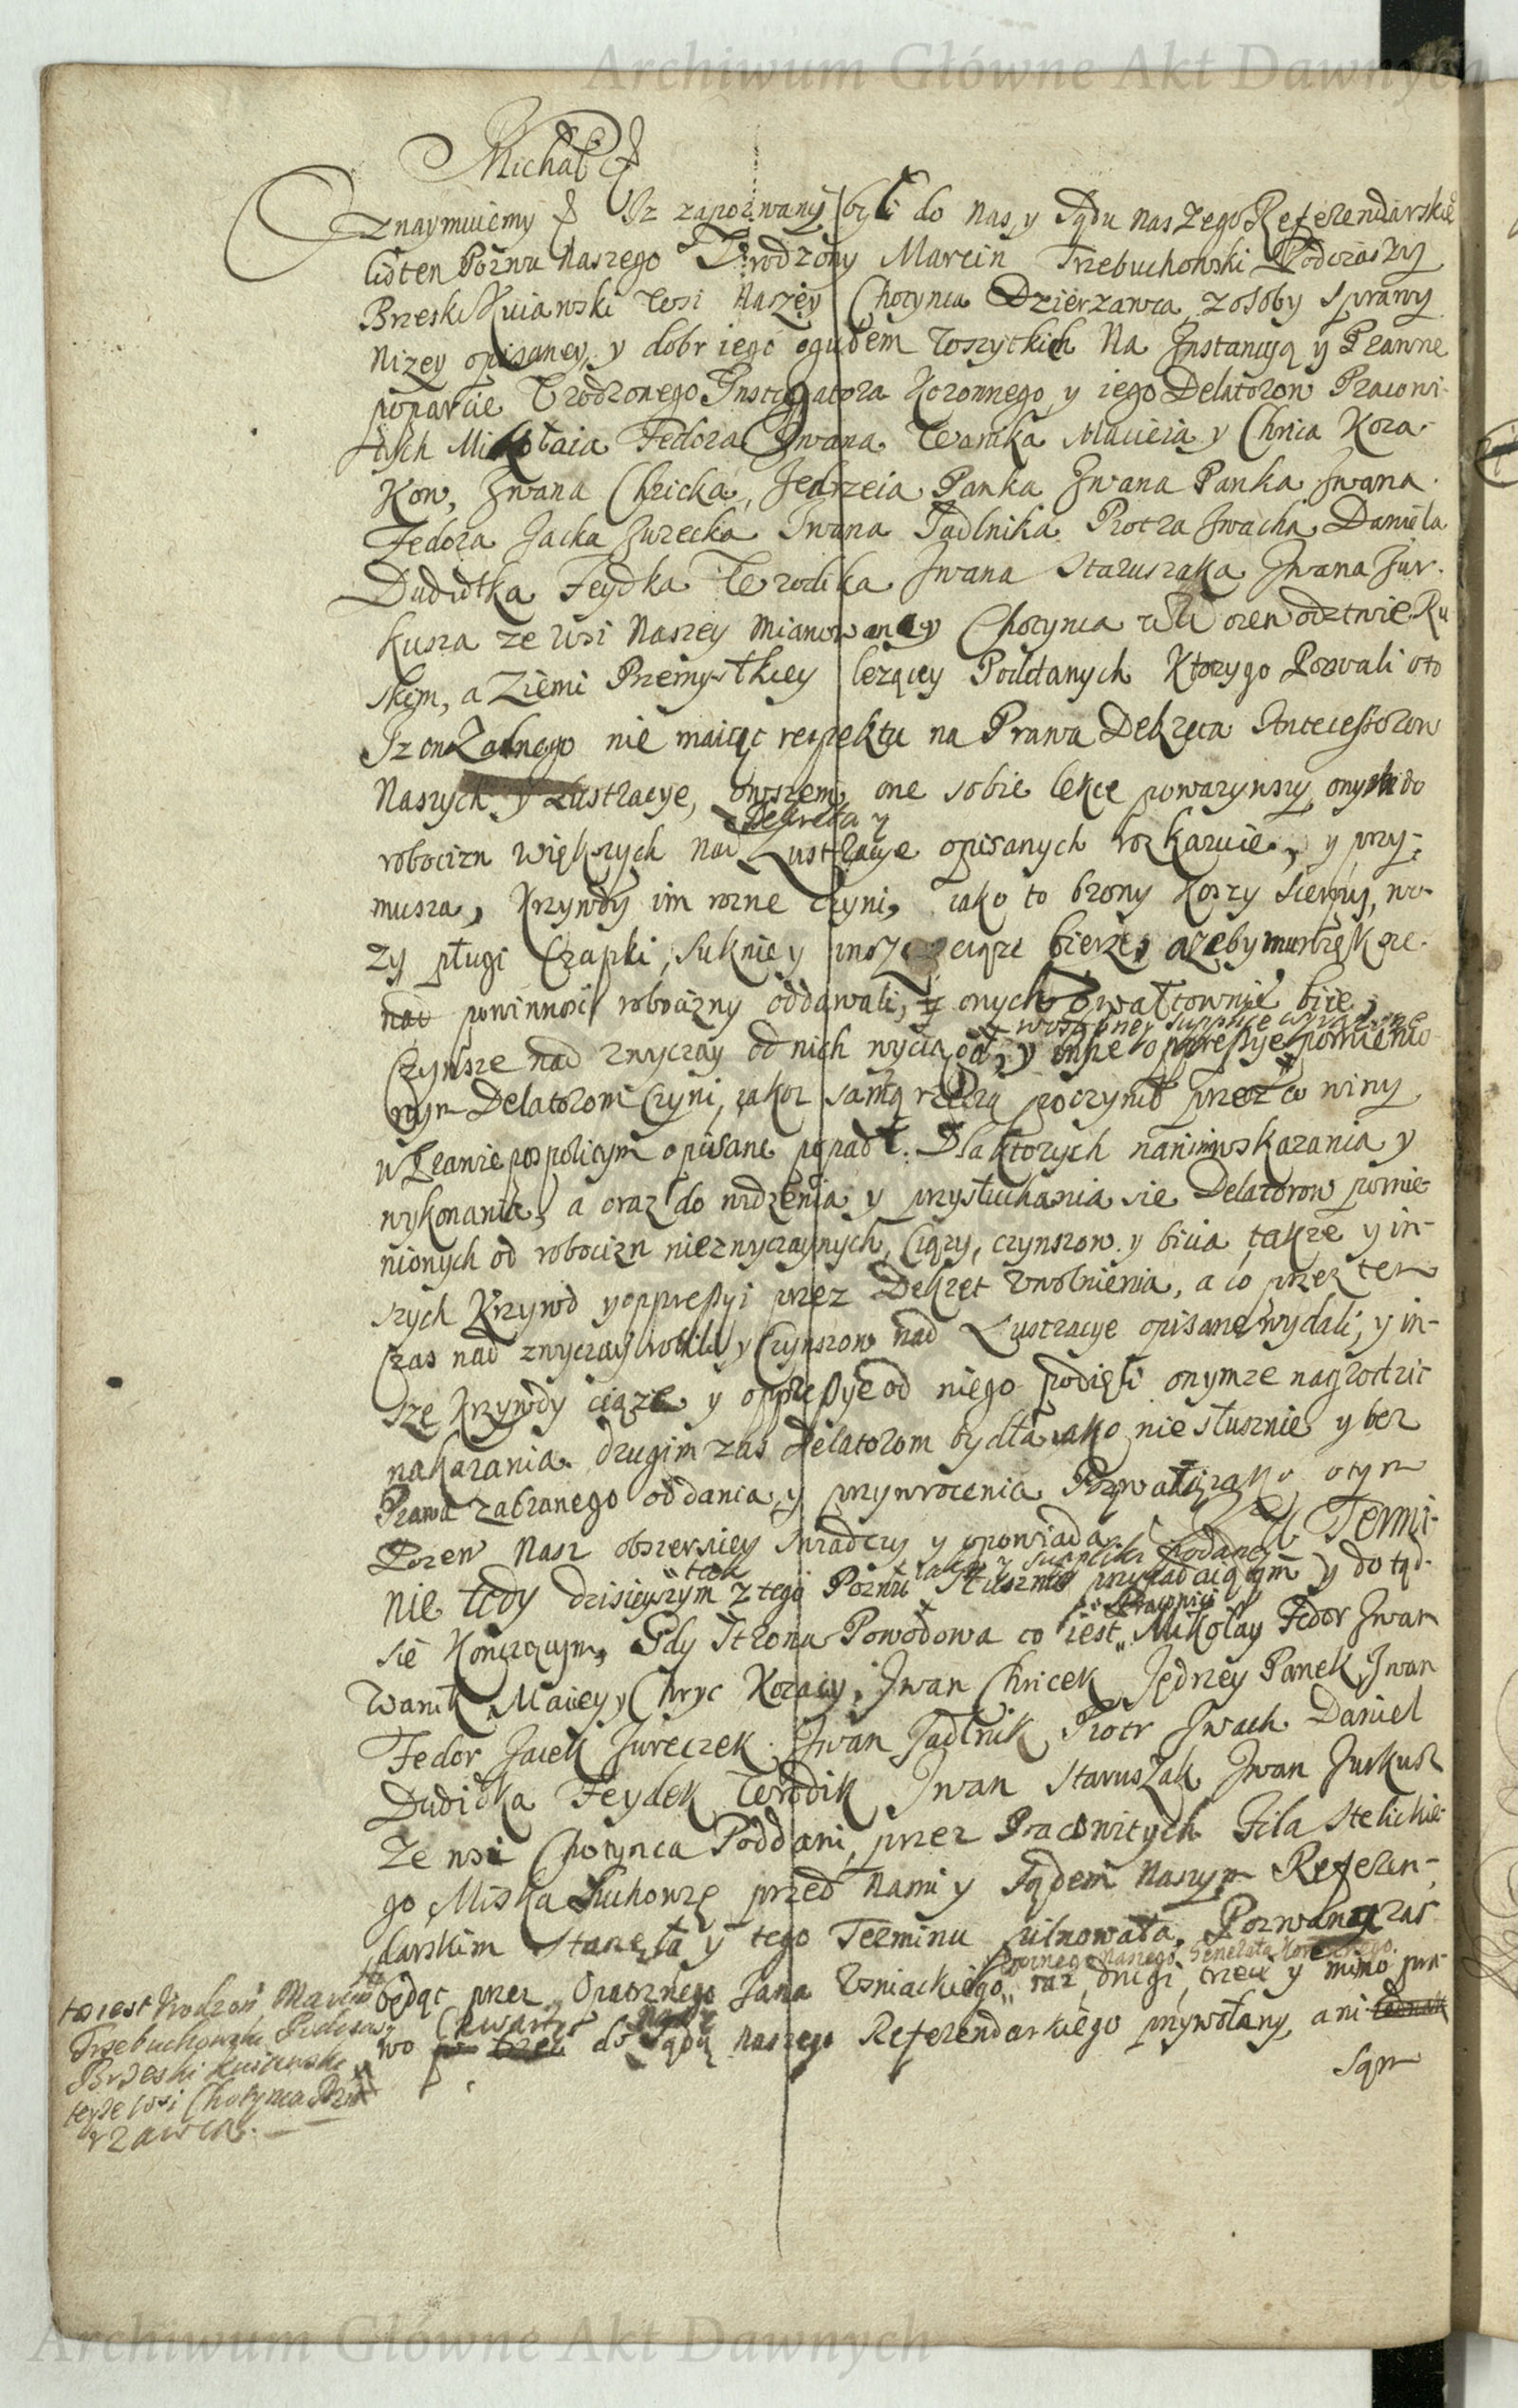 Archiwum Główne Akt Dawnych
Michał
Oznaymuiemy Iz zapozwany był do nas, y Sądu naszego Referendarskie
listem Pozwu Naszego Urodzony Marcin Trzebuchowski Podczaszy
Brzeski Kuiawski Wsi Naszey Chotynca Dzierzawca z osoby sprawy
Nizey opisaney, y dobr iego ogułem wszytkich Na Instancyą y Prawne
poparcie Urodzonego Instygatora Koronnego y iego Delatorow Pracowi-
tych Mikołaia Fedora Iwana Wanika Macieia y Chrica Koza-
kow, Iwana Chricka, Jedrzeia Panka Iwana Panka Iwana
Fedora Jacka Jurecka Iwana Jadlnika Piotra Iwacha Daniela
Dudidka Feydka Werodika Iwana Staruszaka Iwana Jur-
kusza ze wsi Naszey mianowaney Chotynca w Woiewodztwie Ru
skim, a Ziemi Przemyskiey lezącey Poddanych Ktorygo Pozwali oto
Iz on Zadnego nie maiąc respektu na Prawa Dekreta Antecessorow
Naszych y Lustracye, owszem one sobie lekce powazywszy onych do
Dekreta y
robocizn większych nad Lustracye opisanych rozkazuie, y przy-
musza, Krzywdy im rozne czyni, iako to brony Koszy Sierpy, no-
zy pługi Czapki, Suknie y insze ciąze bierze, azeby
nad powinnosc robocizny oddawali, y onych Gwałtownie biie,
w osobney supplice wyrazone
Czynsze nad zwyczay od nich wyciąga, y insze oppressye pomienio
nym Delatorom Czyni, iakoz samą rzeczą poczynił przez co winy
w Prawie pospolitym opisane popadł. Dla ktorych na nim wskazania y
wykonania, a oraz do widzenia y przysłuchania sie Delatorow pomie-
nionych od robocizn niezwyczaynych, Ciązy, czynszow y bicia, takze y in-
szych Krzywd y oppressyi przez Dekret uwolnienia, a co przez ten
Czas nad zwyczay robili y Czynszow nad Lustracye opisane wydali, y in-
sze Krzywdy ciąze y oppressye od niego podięli onymze nagrodzic
nakazania. drugim zas Delatorom bydła iako niesłusznie y bez
Prawa zabranego oddania y przywrocenia Pozwali, iako o tym
Pozew Nasz obszerniey swiadczy y opowiada. Na Termi-
tak iako y suppliki podaney
nie tedy dzisieyszym z tego Pozwu słusznie przypadaiącym y dotąd
Pracowici
sie Konczącym, Gdy Strona Powodowa to iest Mikołay Fedor Iwan
Wanik Maciey y Chryc Kozacy, Iwan Chricek Jędrzey Panek, Iwan
Fedor Jacek Jureczek Iwan Jadlnik Piotr Iwach Daniel
Dudidka Feydek Werodik Iwan Staruszak Iwan Jurkusz
Ze wsi Chotynca Poddani, przez Pracowitych Fila Stelickie
go Miska Suhowzę przed Nami y Sądem Naszym Referen-
darskim Stanęła y tego Terminu pilnowała, Pozwany zas
Woznego Naszego Generała Koronnego
będąc przez Opatrznego Jana Usniackiego raz, drugi, trzeci y mimo pra
wo Czwarty do Sądu naszego Referendarskiego przywołany, ani
Sąm
to iest Urodzony Marcin
Trzebuchowski Podczaszy
Brzeski Kuiawski
teyze wsi Chotynca Dzie
rzawca.
Archiwum Główne Akt Dawnych